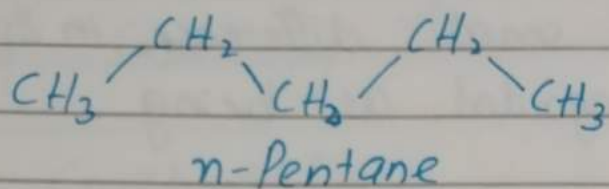 CH₂ CH₂
CH₃ CH₂ CH₃
n-Pentane